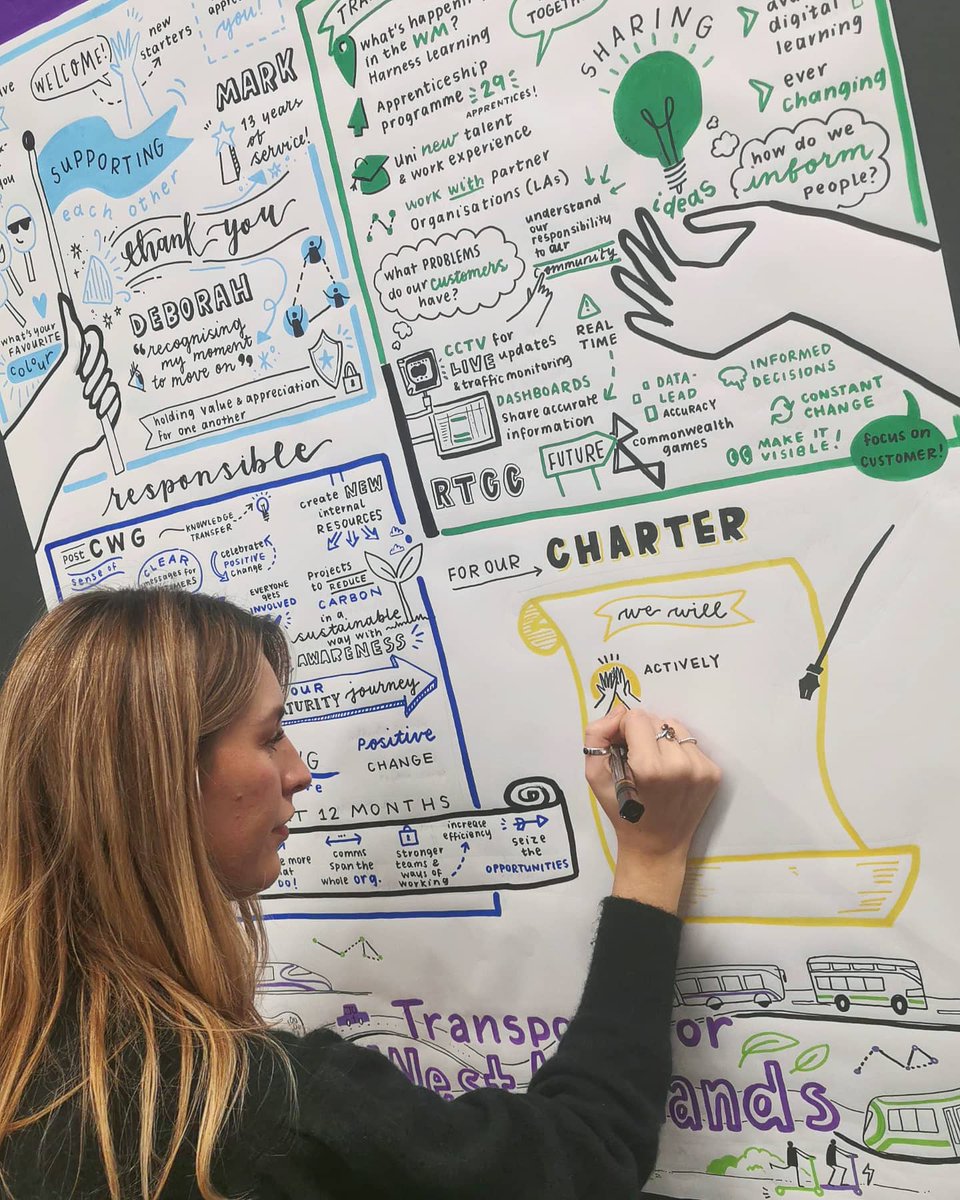 you!
WELCOME!
new
starters
MARK
"13 years
of
service!
SUPPORTING
each other
thank you
DEBORAH
"recognising
my moment
to move on"
what's your
FAVOURITE
colour
holding value & appreciation
for one another
what's happening
in the WM?
Harness learning
Apprenticeship
programme 29
APPRENTICES!
Uni new talent
& work experience
work with partner
Organisations (LAs)
TOGETHER
SHARING
ideas
digital
learning
ever
changing
how do we
inform
people?
understand
our
responsibility
to our
community
what PROBLEMS
do our customers
have?
CCTV for
LIVE updates
& traffic monitoring
REAL
TIME
DASHBOARDS
share accurate
information
DATA-
LEAD
ACCURACY
INFORMED
DECISIONS
CONSTANT
CHANGE
MAKE IT
VISIBLE!
commonwealth
games
FUTURE
RTCC
focus on
CUSTOMER!
responsible
POST CWG
KNOWLEDGE
TRANSFER
create NEW
internal
RESOURCES
sense of
CLEAR
messages for
celebrate
POSITIVE
change
EVERYONE
gets
INVOLVED
Projects
to REDUCE
CARBON
in a
sustainable
way with
AWARENESS
OUR
journey
Positive
CHANGE
12 MONTHS
more
DO!
comms
span the
whole org.
stronger
teams &
ways of
working
increase
efficiency
seize
the
OPPORTUNITIES
FOR OUR
CHARTER
we will
ACTIVELY